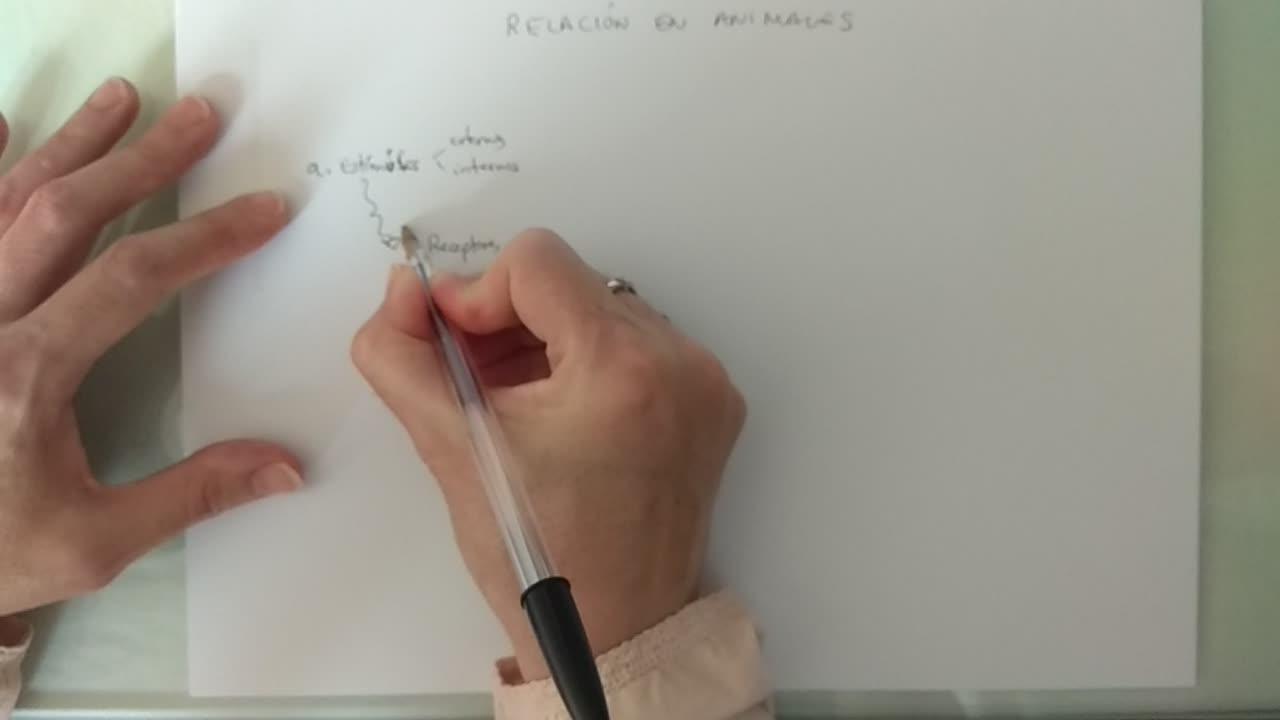 RELACIÓN EN ANIMALES
externos
a. Estímulos
internos
Receptores